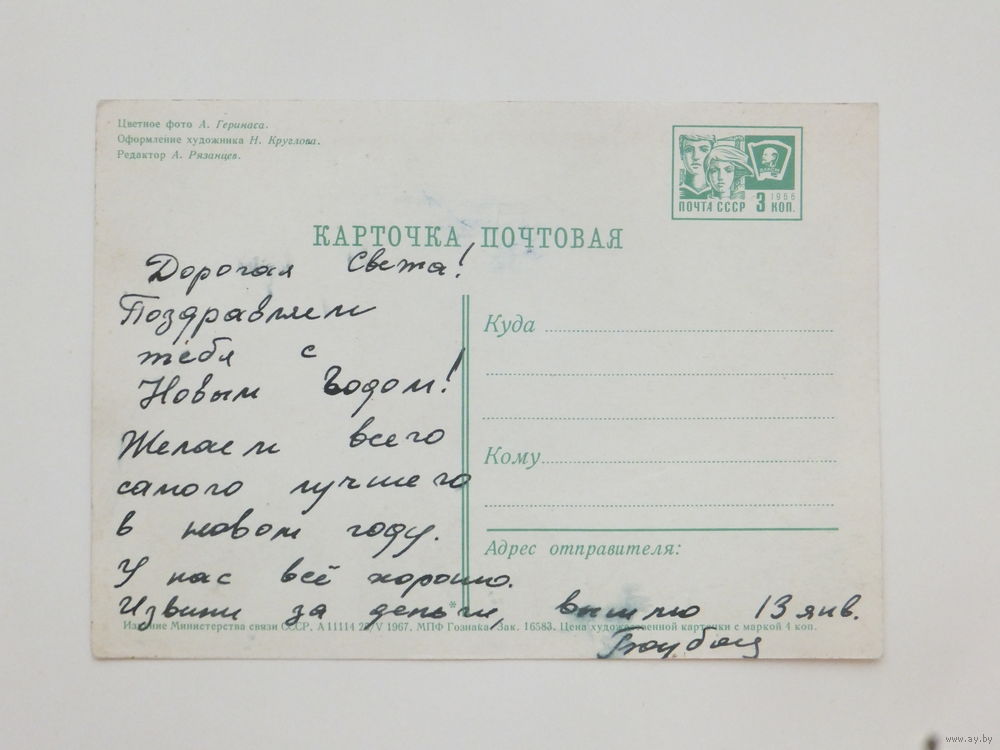 Цветное фото А. Геринаса.
Оформление художника Н. Круглова.
Редактор А. Рязанцев.
ПОЧТА СССР 3 КОП.
1966
КАРТОЧКА ПОЧТОВАЯ
Дорогая Света!
Поздравляем
тебя с
Новым Годом!
Желаем всего
самого лучшего
в новом году.
У нас всё хорошо.
Извини за деньги, вышлю 13 янв.
Куда
Кому
Адрес отправителя:
Издание Министерства связи СССР. А 11114 25/V 1967. МПФ Гознака. Зак. 16583. Цена художественной карточки с маркой 4 коп.
www.ay.by